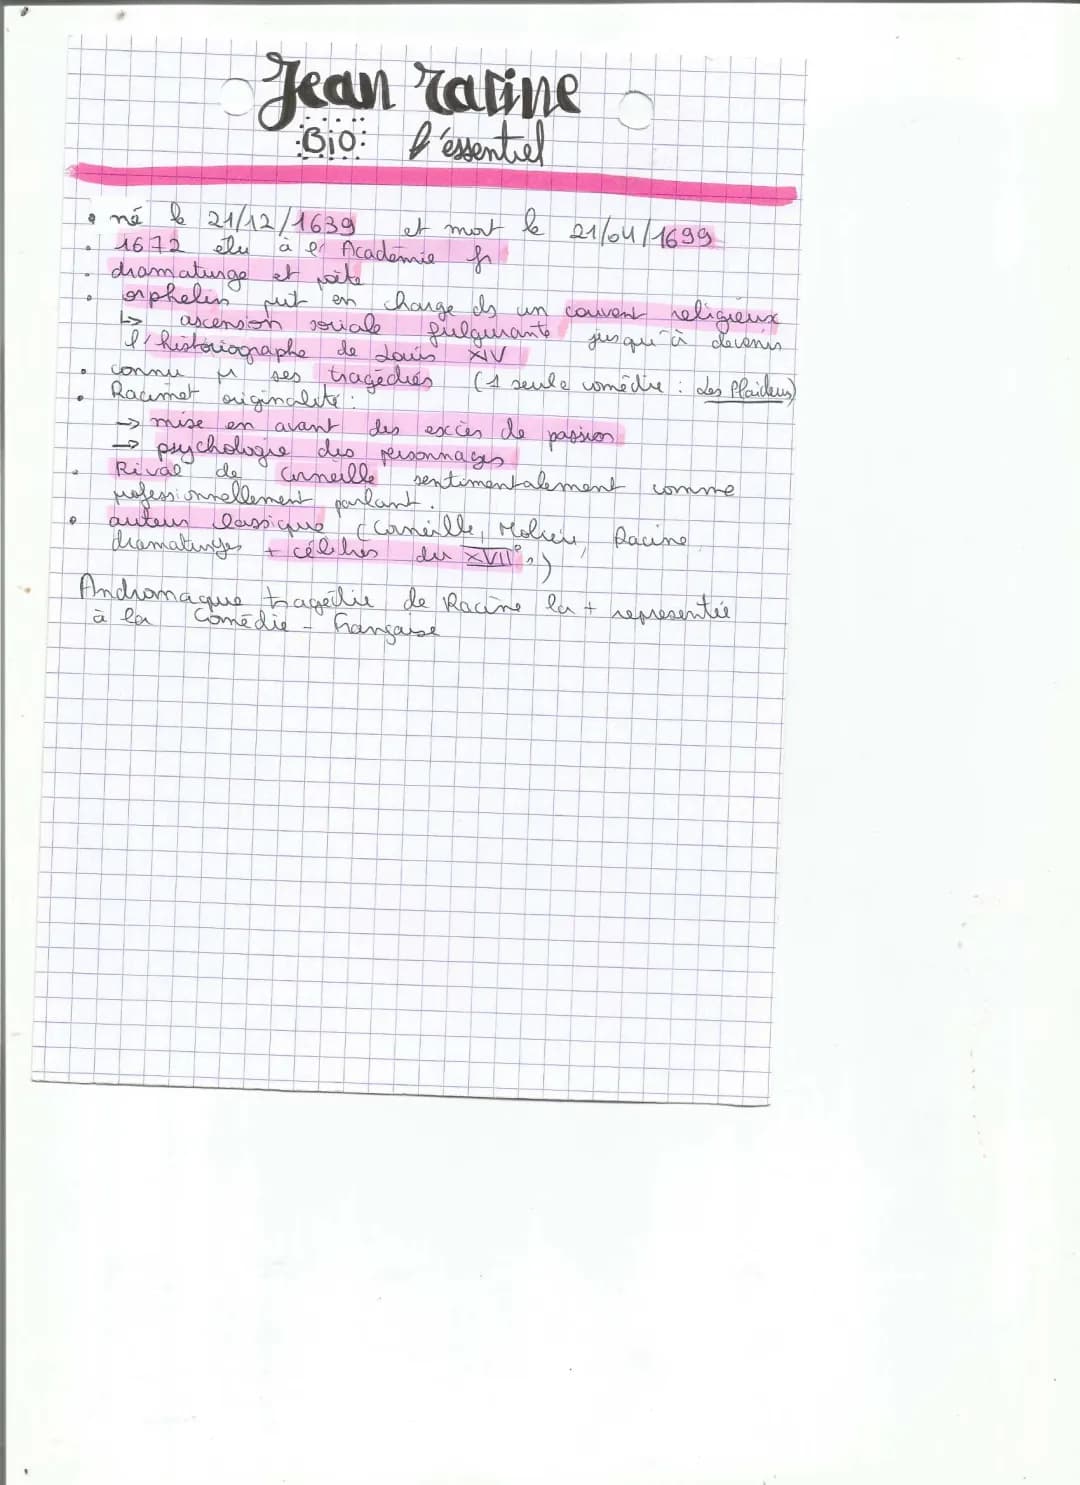 Jean racine
Bio: l'éssentiel
• né le 21/12/1639 et mort le 21/04/1699
• 1672 élu à l' Académie fr
• dramaturge et poète
• orphelin put en charge ds un couvent religieux
↳ ascension sociale fulgurante jusqu'à devenir
l'historiographe de Louis XIV
• connu pr ses tragédies (1 seule comédie : Les Plaideurs)
• Racine et originalité :
→ mise en avant des excès de passion
→ psychologie des personnages
• Rival de Corneille sentimentalement comme
professionnellement parlant.
• auteur classique (Corneille, Molière, Racine
dramaturges + célèbres du XVII°s)
Andromaque tragédie de Racine la + representée
à la Comédie - Française